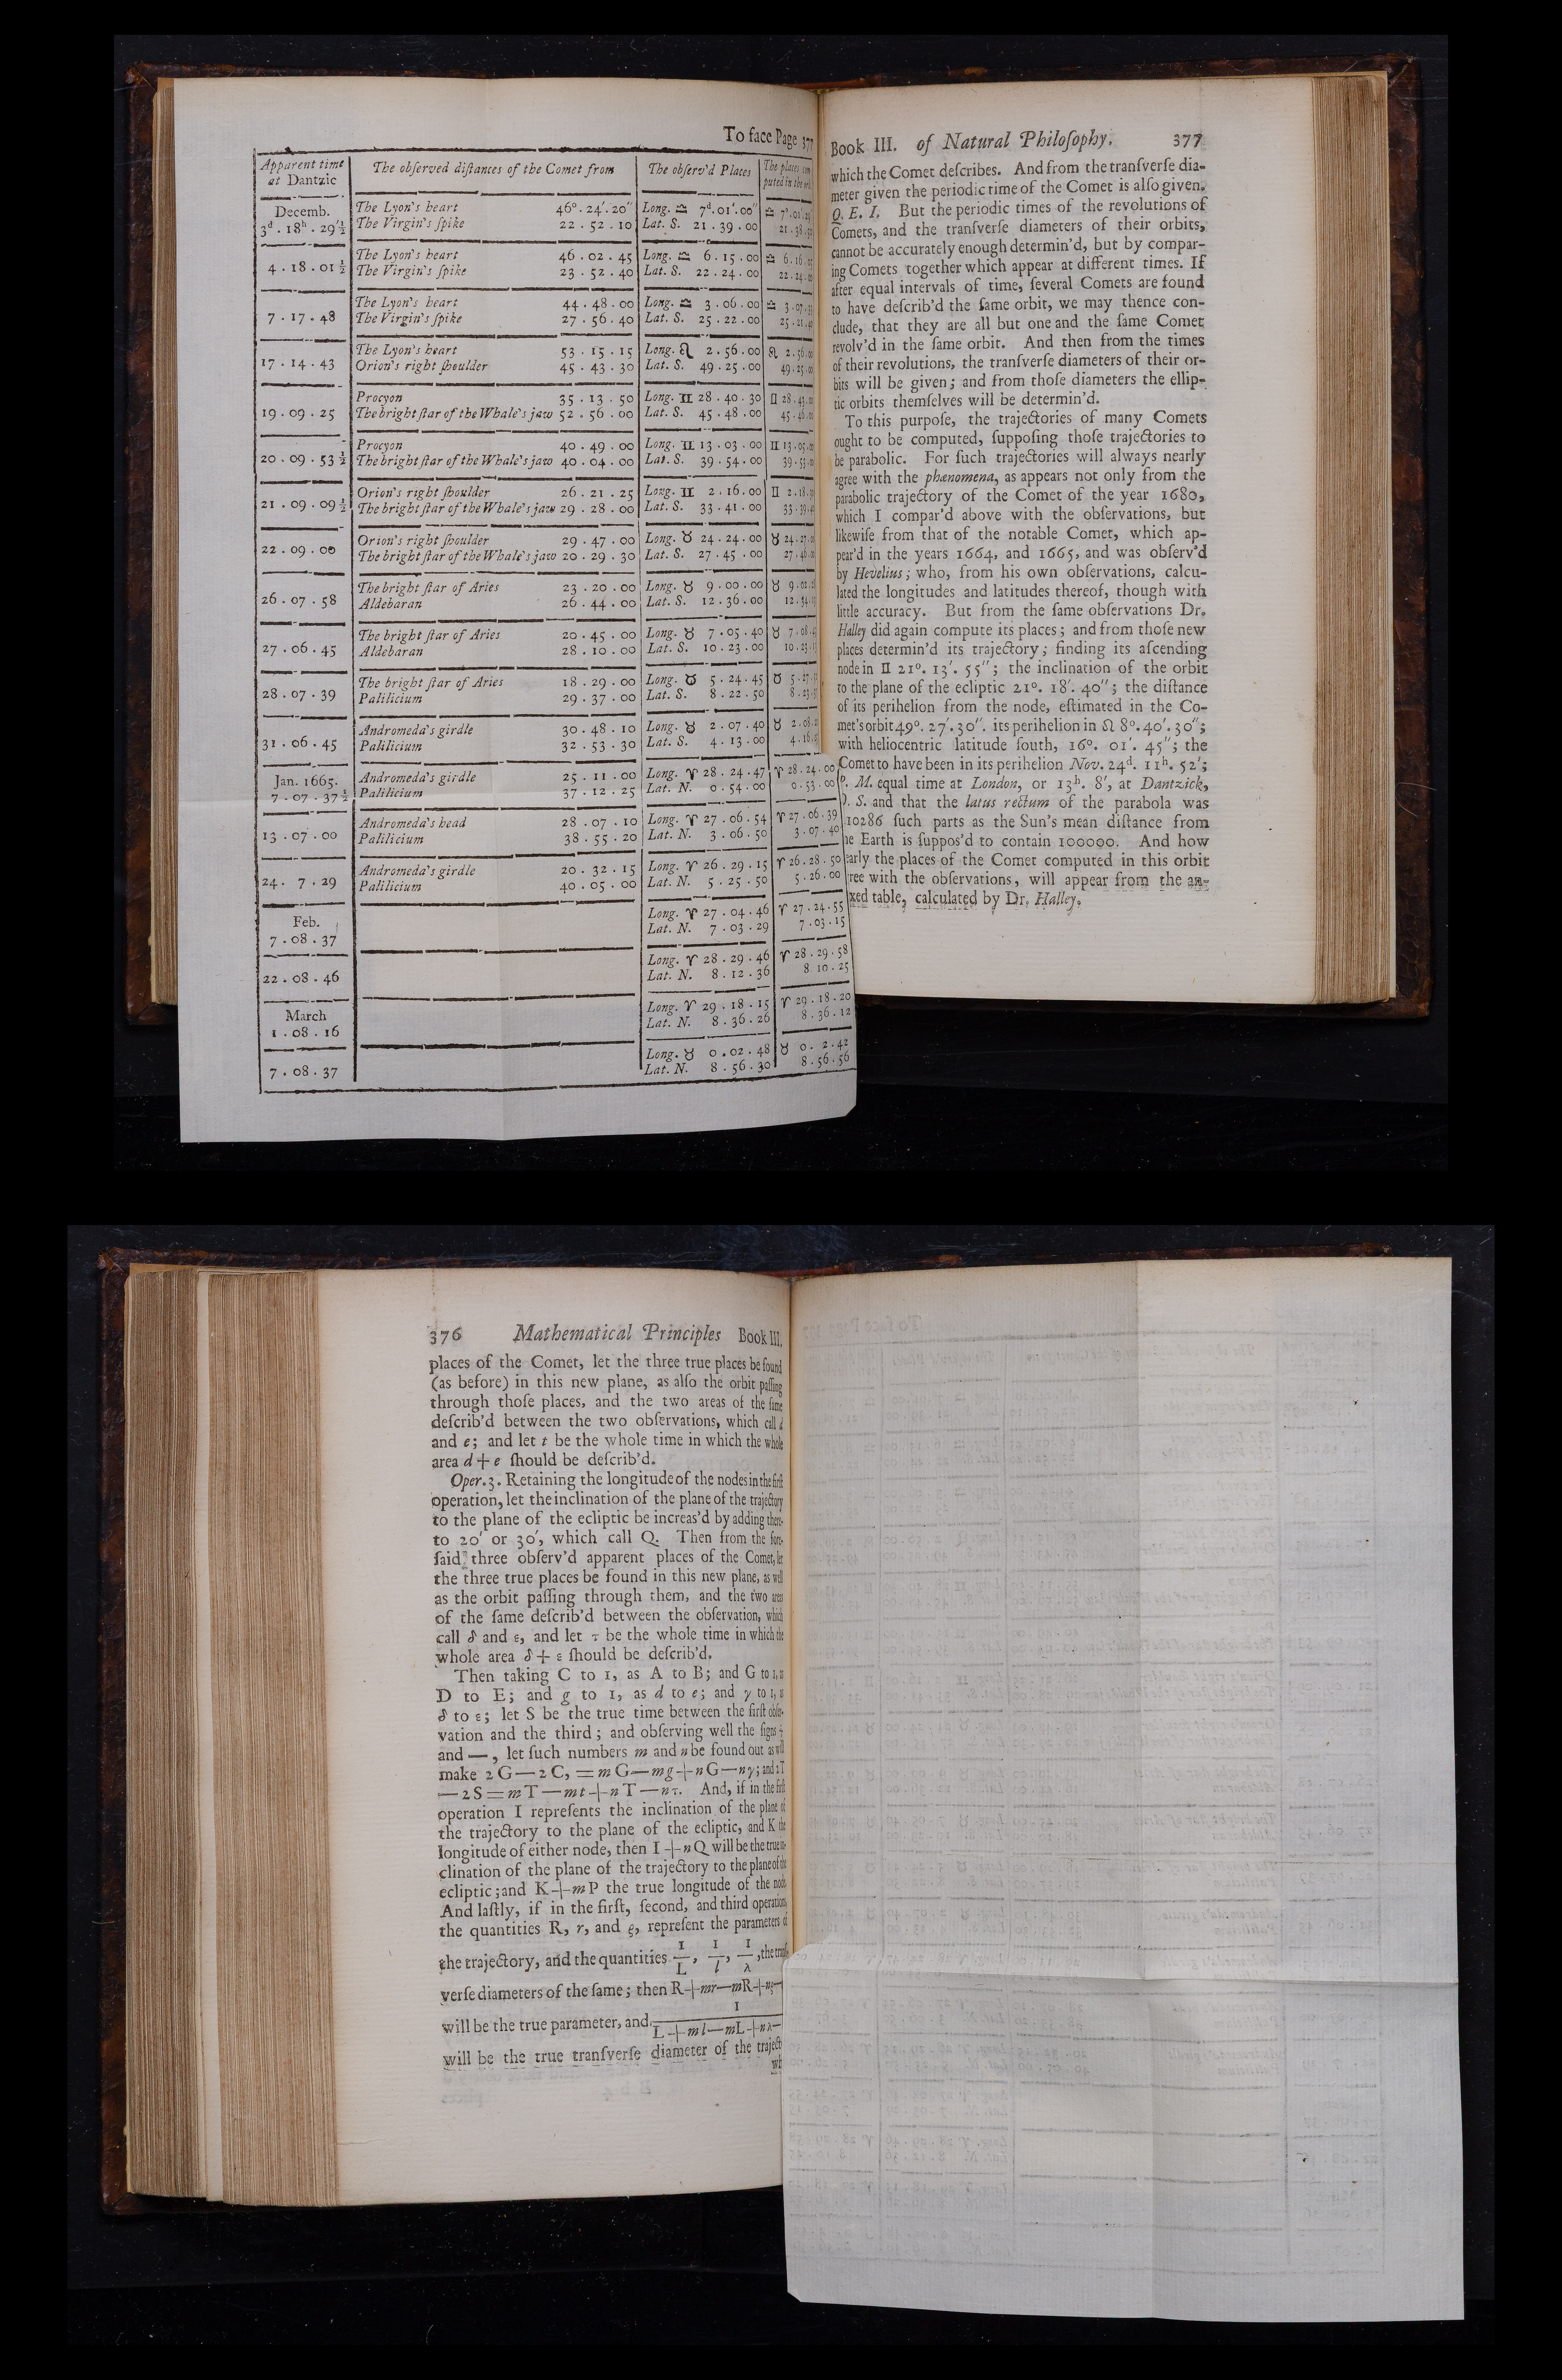 To face Page 377
Apparent time at Dantzic | The obſerved diſtances of the Comet from | The obſerv'd Places | The places
Decemb.
3ᵈ. 18ʰ. 29′½ | The Lyon's heart 46°. 24′. 20″ | Long. ♎ 7ᵈ. 01′. 00″ | ♎ 7°. 01′.
The Virgin's ſpike 22 . 52 . 10 | Lat. S. 21 . 39 . 00 | 21 . 38 .
4 . 18 . 01½ | The Lyon's heart 46 . 02 . 45 | Long. ♎ 6 . 15 . 00 | ♎ 6 . 16 .
The Virgin's ſpike 23 . 52 . 40 | Lat. S. 22 . 24 . 00 | 22 . 24 .
7 . 17 . 48 | The Lyon's heart 44 . 48 . 00 | Long. ♎ 3 . 06 . 00 | ♎ 3 . 07 .
The Virgin's ſpike 27 . 56 . 40 | Lat. S. 25 . 22 . 00 | 25 . 21 .
17 . 14 . 43 | The Lyon's heart 53 . 15 . 15 | Long. ♌ 2 . 56 . 00 | ♌ 2 . 56 .
Orion's right ſhoulder 45 . 43 . 30 | Lat. S. 49 . 25 . 00 | 49 . 25 .
19 . 09 . 25 | Procyon 35 . 13 . 50 | Long. ♊ 28 . 40 . 30 | ♊ 28 . 43 .
The bright ſtar of the Whale's jaw 52 . 56 . 00 | Lat. S. 45 . 48 . 00 | 45 . 46 .
20 . 09 . 53½ | Procyon 40 . 49 . 00 | Long. ♊ 13 . 03 . 00 | ♊ 13 . 05 .
The bright ſtar of the Whale's jaw 40 . 04 . 00 | Lat. S. 39 . 54 . 00 | 39 . 53 .
21 . 09 . 09½ | Orion's right ſhoulder 26 . 21 . 25 | Long. ♊ 2 . 16 . 00 | ♊ 2 . 18 .
The bright ſtar of the Whale's jaw 29 . 28 . 00 | Lat. S. 33 . 41 . 00 | 33 . 39 .
22 . 09 . 00 | Orion's right ſhoulder 29 . 47 . 00 | Long. ♉ 24 . 24 . 00 | ♉ 24 . 27 .
The bright ſtar of the Whale's jaw 20 . 29 . 30 | Lat. S. 27 . 45 . 00 | 27 . 46 .
26 . 07 . 58 | The bright ſtar of Aries 23 . 20 . 00 | Long. ♉ 9 . 00 . 00 | ♉ 9 . 02 .
Aldebaran 26 . 44 . 00 | Lat. S. 12 . 36 . 00 | 12 . 34 .
27 . 06 . 45 | The bright ſtar of Aries 20 . 45 . 00 | Long. ♉ 7 . 05 . 40 | ♉ 7 . 08 .
Aldebaran 28 . 10 . 00 | Lat. S. 10 . 23 . 00 | 10 . 23 .
28 . 07 . 39 | The bright ſtar of Aries 18 . 29 . 00 | Long. ♉ 5 . 24 . 45 | ♉ 5 . 27 .
Palilicium 29 . 37 . 00 | Lat. S. 8 . 22 . 50 | 8 . 23 .
31 . 06 . 45 | Andromeda's girdle 30 . 48 . 10 | Long. ♉ 2 . 07 . 40 | ♉ 2 . 08 .
Palilicium 32 . 53 . 30 | Lat. S. 4 . 13 . 00 | 4 . 16 .
Jan. 1665.
7 . 07 . 37½ | Andromeda's girdle 25 . 11 . 00 | Long. ♈ 28 . 24 . 47 | ♈ 28 . 24 . 00
Palilicium 37 . 12 . 25 | Lat. N. 0 . 54 . 00 | 0 . 53 . 00
13 . 07 . 00 | Andromeda's head 28 . 07 . 10 | Long. ♈ 27 . 06 . 54 | ♈ 27 . 06 . 39
Palilicium 38 . 55 . 20 | Lat. N. 3 . 06 . 50 | 3 . 07 . 40
24 . 7 . 29 | Andromeda's girdle 20 . 32 . 15 | Long. ♈ 26 . 29 . 15 | ♈ 26 . 28 . 50
Palilicium 40 . 05 . 00 | Lat. N. 5 . 25 . 50 | 5 . 26 . 00
Feb.
7 . 08 . 37 | Long. ♈ 27 . 04 . 46 | ♈ 27 . 24 . 55
Lat. N. 7 . 03 . 29 | 7 . 03 . 15
22 . 08 . 46 | Long. ♈ 28 . 29 . 46 | ♈ 28 . 29 . 58
Lat. N. 8 . 12 . 36 | 8 . 10 . 25
March
1 . 08 . 16 | Long. ♈ 29 . 18 . 15 | ♈ 29 . 18 . 20
Lat. N. 8 . 36 . 26 | 8 . 36 . 12
7 . 08 . 37 | Long. ♉ 0 . 02 . 48 | ♉ 0 . 2 . 42
Lat. N. 8 . 56 . 30 | 8 . 56 . 56
Book III. of Natural Philoſophy. 377
which the Comet deſcribes. And from the tranſverſe dia-
meter given the periodic time of the Comet is alſo given.
Q. E. I. But the periodic times of the revolutions of
Comets, and the tranſverſe diameters of their orbits,
cannot be accurately enough determin'd, but by compar-
ing Comets together which appear at different times. If
after equal intervals of time, ſeveral Comets are found
to have deſcrib'd the ſame orbit, we may thence con-
clude, that they are all but one and the ſame Comet
revolv'd in the ſame orbit. And then from the times
of their revolutions, the tranſverſe diameters of their or-
bits will be given; and from thoſe diameters the ellip-
tic orbits themſelves will be determin'd.
To this purpoſe, the trajectories of many Comets
ought to be computed, ſuppoſing thoſe trajectories to
be parabolic. For ſuch trajectories will always nearly
agree with the phænomena, as appears not only from the
parabolic trajectory of the Comet of the year 1680,
which I compar'd above with the obſervations, but
likewiſe from that of the notable Comet, which ap-
pear'd in the years 1664, and 1665, and was obſerv'd
by Hevelius; who, from his own obſervations, calcu-
lated the longitudes and latitudes thereof, though with
little accuracy. But from the ſame obſervations Dr.
Halley did again compute its places; and from thoſe new
places determin'd its trajectory; finding its aſcending
node in ♊ 21°. 13′. 55″; the inclination of the orbit
to the plane of the ecliptic 21°. 18′. 40″; the diſtance
of its perihelion from the node, eſtimated in the Co-
met's orbit 49°. 27′. 30″. its perihelion in ♌ 8°. 40′. 30″;
with heliocentric latitude ſouth, 16°. 01′. 45″; the
Comet to have been in its perihelion Nov. 24ᵈ. 11ʰ. 52′;
P. M. equal time at London, or 13ʰ. 8′, at Dantzick,
O. S. and that the latus rectum of the parabola was
10286 ſuch parts as the Sun's mean diſtance from
he Earth is ſuppos'd to contain 100000. And how
early the places of the Comet computed in this orbit
ree with the obſervations, will appear from the an-
xed table, calculated by Dr. Halley.
376 Mathematical Principles Book III.
places of the Comet, let the three true places be found
(as before) in this new plane, as alſo the orbit paſſing
through thoſe places, and the two areas of the ſame
deſcrib'd between the two obſervations, which call d
and e; and let t be the whole time in which the whole
area d + e ſhould be deſcrib'd.
Oper. 3. Retaining the longitude of the nodes in the firſt
operation, let the inclination of the plane of the trajectory
to the plane of the ecliptic be increas'd by adding there-
to 20′ or 30′, which call Q. Then from the fore-
ſaid three obſerv'd apparent places of the Comet, let
the three true places be found in this new plane, as well
as the orbit paſſing through them, and the two areas
of the ſame deſcrib'd between the obſervation, which
call δ and ε, and let τ be the whole time in which the
whole area δ + ε ſhould be deſcrib'd.
Then taking C to 1, as A to B; and G to 1, as
D to E; and g to 1, as d to e; and γ to 1, as
δ to ε; let S be the true time between the firſt obſer-
vation and the third; and obſerving well the ſigns +
and —, let ſuch numbers m and n be found out as will
make 2 G — 2 C, = m G — m g + n G — n γ; and 2 T
— 2 S = m T — m t + n T — n τ. And, if in the firſt
operation I repreſents the inclination of the plane of
the trajectory to the plane of the ecliptic, and K the
longitude of either node, then I + n Q will be the true in-
clination of the plane of the trajectory to the plane of the
ecliptic; and K + m P the true longitude of the node.
And laſtly, if in the firſt, ſecond, and third operations,
the quantities R, r, and ρ, repreſent the parameters of
the trajectory, and the quantities 1/L, 1/l, 1/λ, the tranſ-
verſe diameters of the ſame; then R + mr — mR + nρ —
will be the true parameter, and 1/(L + m l — mL + nλ —
will be the true tranſverſe diameter of the traject
wh